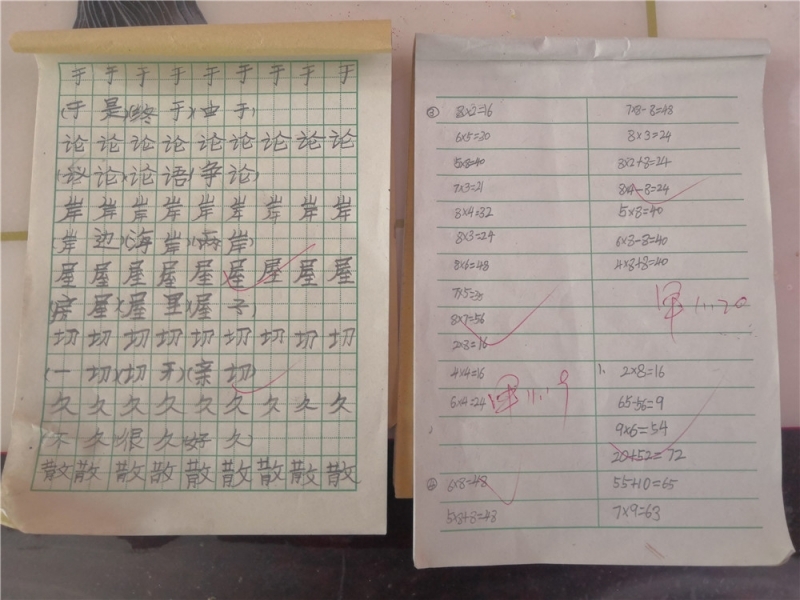 于于于于于于于于于
(于是)(终于)(由于)
论论论论论论论论论
(议论)(论语)(争论)
岸岸岸岸岸岸岸岸岸
(岸边)(海岸)(两岸)
屋屋屋屋屋屋屋屋屋
(房屋)(屋里)(屋子)
切切切切切切切切切
(一切)(切牙)(亲切)
久久久久久久久久久
(不久)(很久)(好久)
散散散散散散散散散
① 8×2=16
6×5=30
5×8=40
7×3=21
8×4=32
8×3=24
8×6=48
7×5=35
8×7=56
2×8=16
4×4=16
6×4=24
11.19
② 6×8=48
5×8+8=48
7×8-8=48
8×3=24
8×2+8=24
8×4-8=24
5×8=40
6×8-8=40
4×8+8=40
11.20
1. 2×8=16
65-56=9
9×6=54
20+52=72
55+10=65
7×9=63